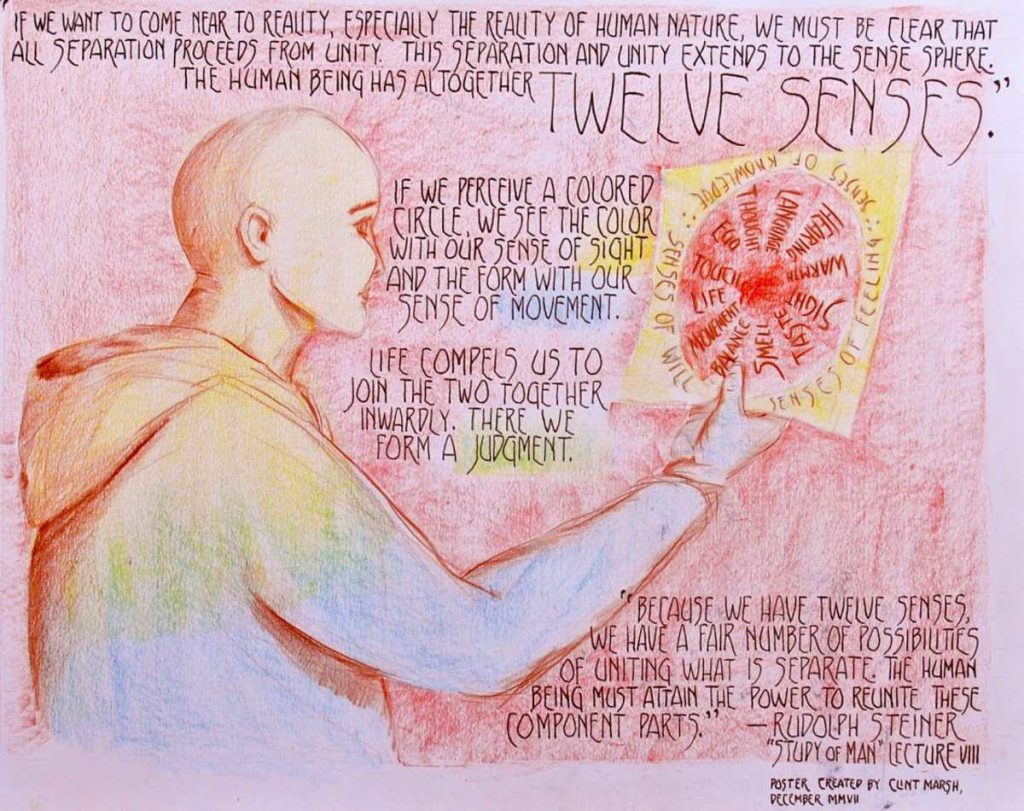 "IF WE WANT TO COME NEAR TO REALITY, ESPECIALLY THE REALITY OF HUMAN NATURE, WE MUST BE CLEAR THAT
ALL SEPARATION PROCEEDS FROM UNITY. THIS SEPARATION AND UNITY EXTENDS TO THE SENSE SPHERE.
THE HUMAN BEING HAS ALTOGETHER TWELVE SENSES."
IF WE PERCEIVE A COLORED
CIRCLE, WE SEE THE COLOR
WITH OUR SENSE OF SIGHT
AND THE FORM WITH OUR
SENSE OF MOVEMENT.
LIFE COMPELS US TO
JOIN THE TWO TOGETHER
INWARDLY. THERE WE
FORM A JUDGMENT.
SENSES OF KNOWLEDGE
SENSES OF FEELING
SENSES OF WILL
EGO
THOUGHT
LANGUAGE
HEARING
WARMTH
SIGHT
TASTE
SMELL
BALANCE
MOVEMENT
LIFE
TOUCH
"BECAUSE WE HAVE TWELVE SENSES,
WE HAVE A FAIR NUMBER OF POSSIBILITIES
OF UNITING WHAT IS SEPARATE. THE HUMAN
BEING MUST ATTAIN THE POWER TO REUNITE THESE
COMPONENT PARTS." — RUDOLPH STEINER
"STUDY OF MAN" LECTURE VIII
POSTER CREATED BY CLINT MARSH,
DECEMBER MMVII